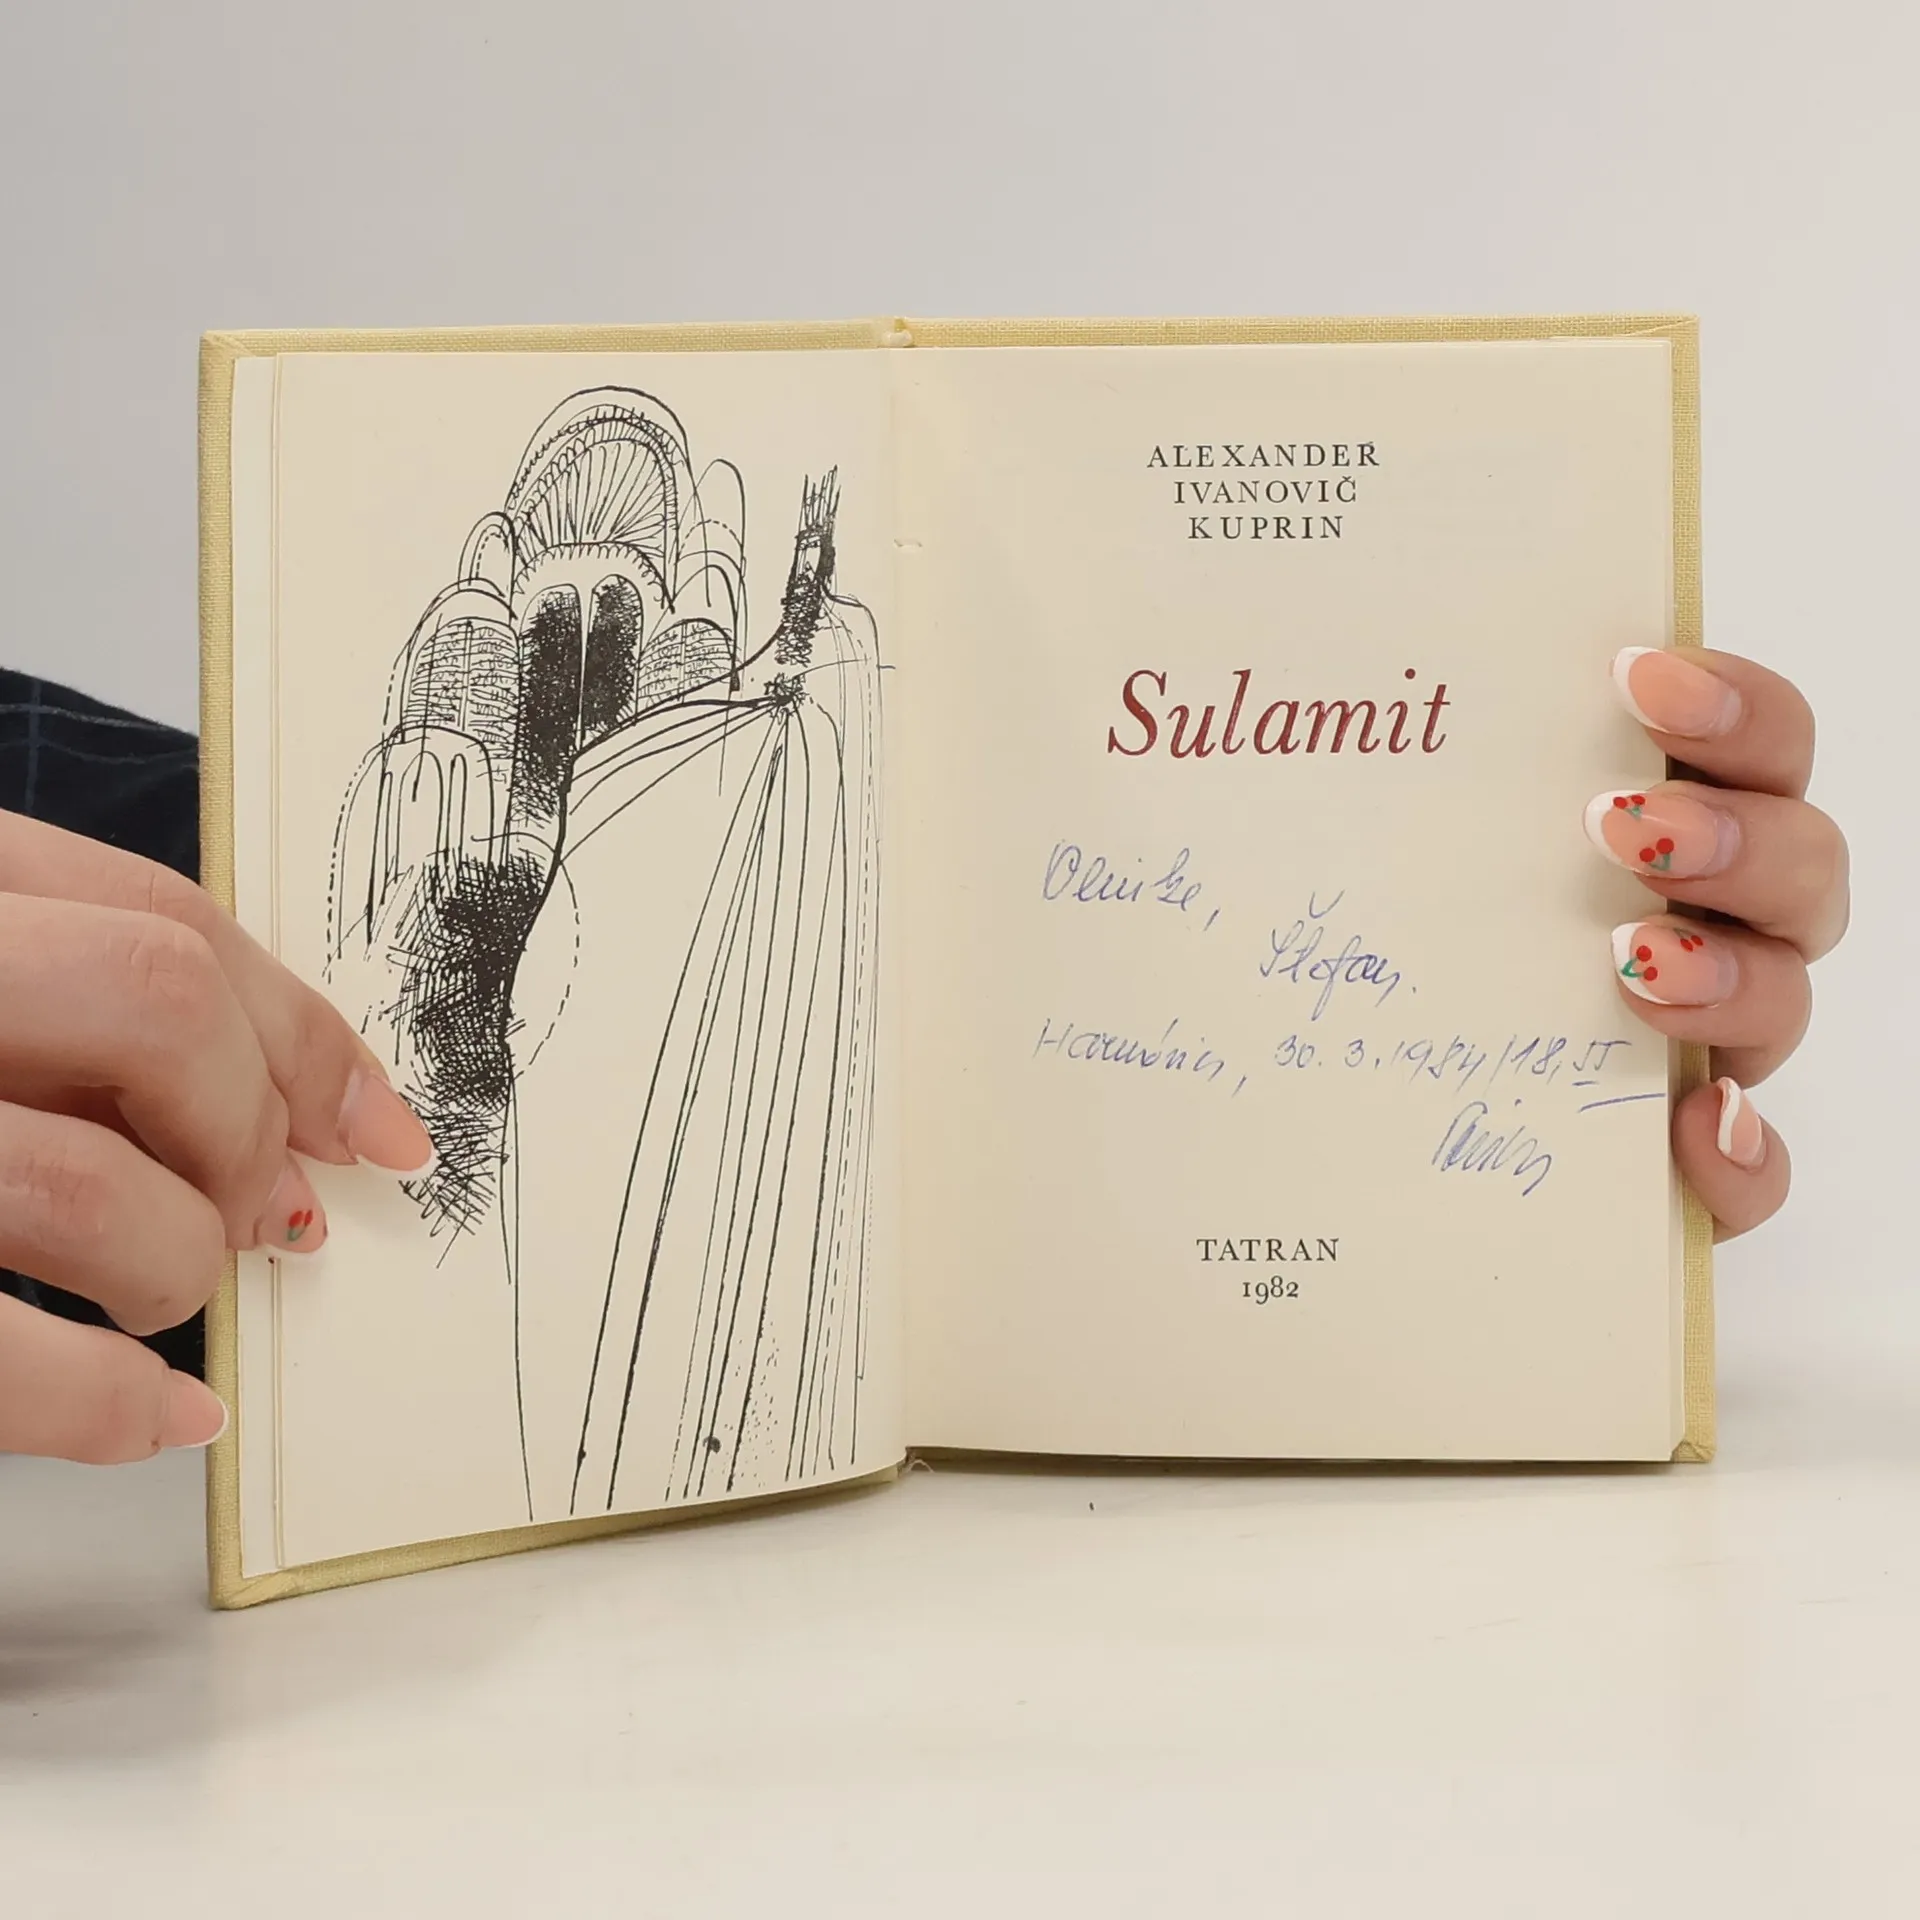 ALEXANDER
IVANOVIČ
KUPRIN
Sulamit
Štefan.
Harmónia, 30. 3. 1984/18,
TATRAN
1982